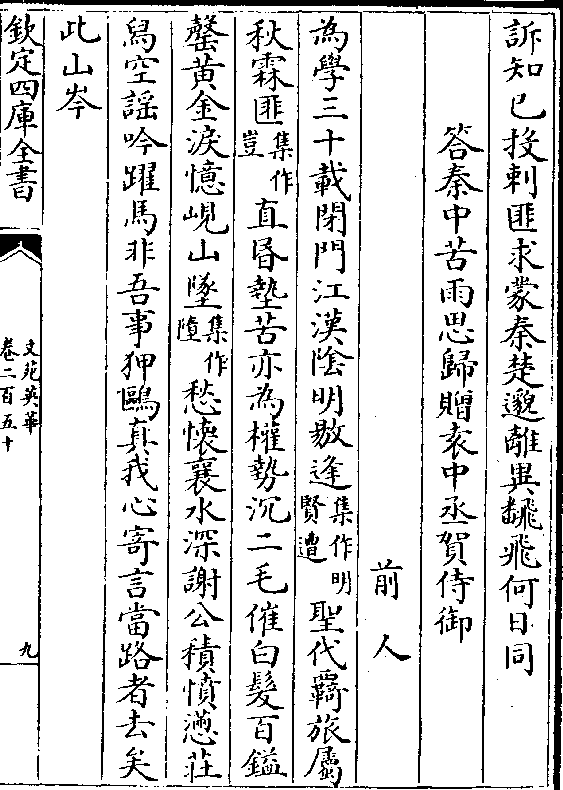 訴知已投刺匪求蒙秦楚邈離異飜飛何日同
答秦中苦雨思歸贈袁中丞賀侍御
前人
為學三十載閉門江漢陰明敭逢集作明賢遭聖代羇旅屬
秋霖匪集作豈直昏墊苦亦為權勢沉二毛催白髮百鎰
罄黄金淚憶峴山墜集作墮愁懷襄水深謝公積憤懣莊
舄空謡吟躍馬非吾事狎鷗真我心寄言當路者去矣
此山岑
欽定四庫全書
文苑英華
卷二百五十
九